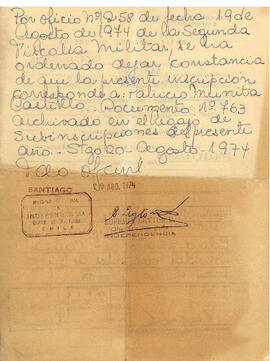 Por oficio Nº 258 de fecha 19 de
Agosto de 1974 de la Segunda
Fiscalia Militar, se ha
ordenado dejar constancia
de que la presente inscripción
corresponde a: Patricio Munita
Castillo.- Documento Nº 763
archivado en el legajo de
Subinscripciones del presente
año.- Stgo, 20- Agosto- 1974
SANTIAGO
20 AGO. 1974
INDEPENDENCIA
CHILE
INDEPENDENCIA